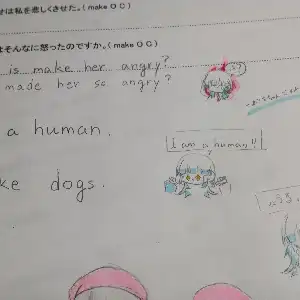 せは私を悲しくさせた。(make O C)
はそんなに怒ったのですか。(make O C)
is make her angry?
made her so angry?
a human.
I am a human!!
ke dogs.